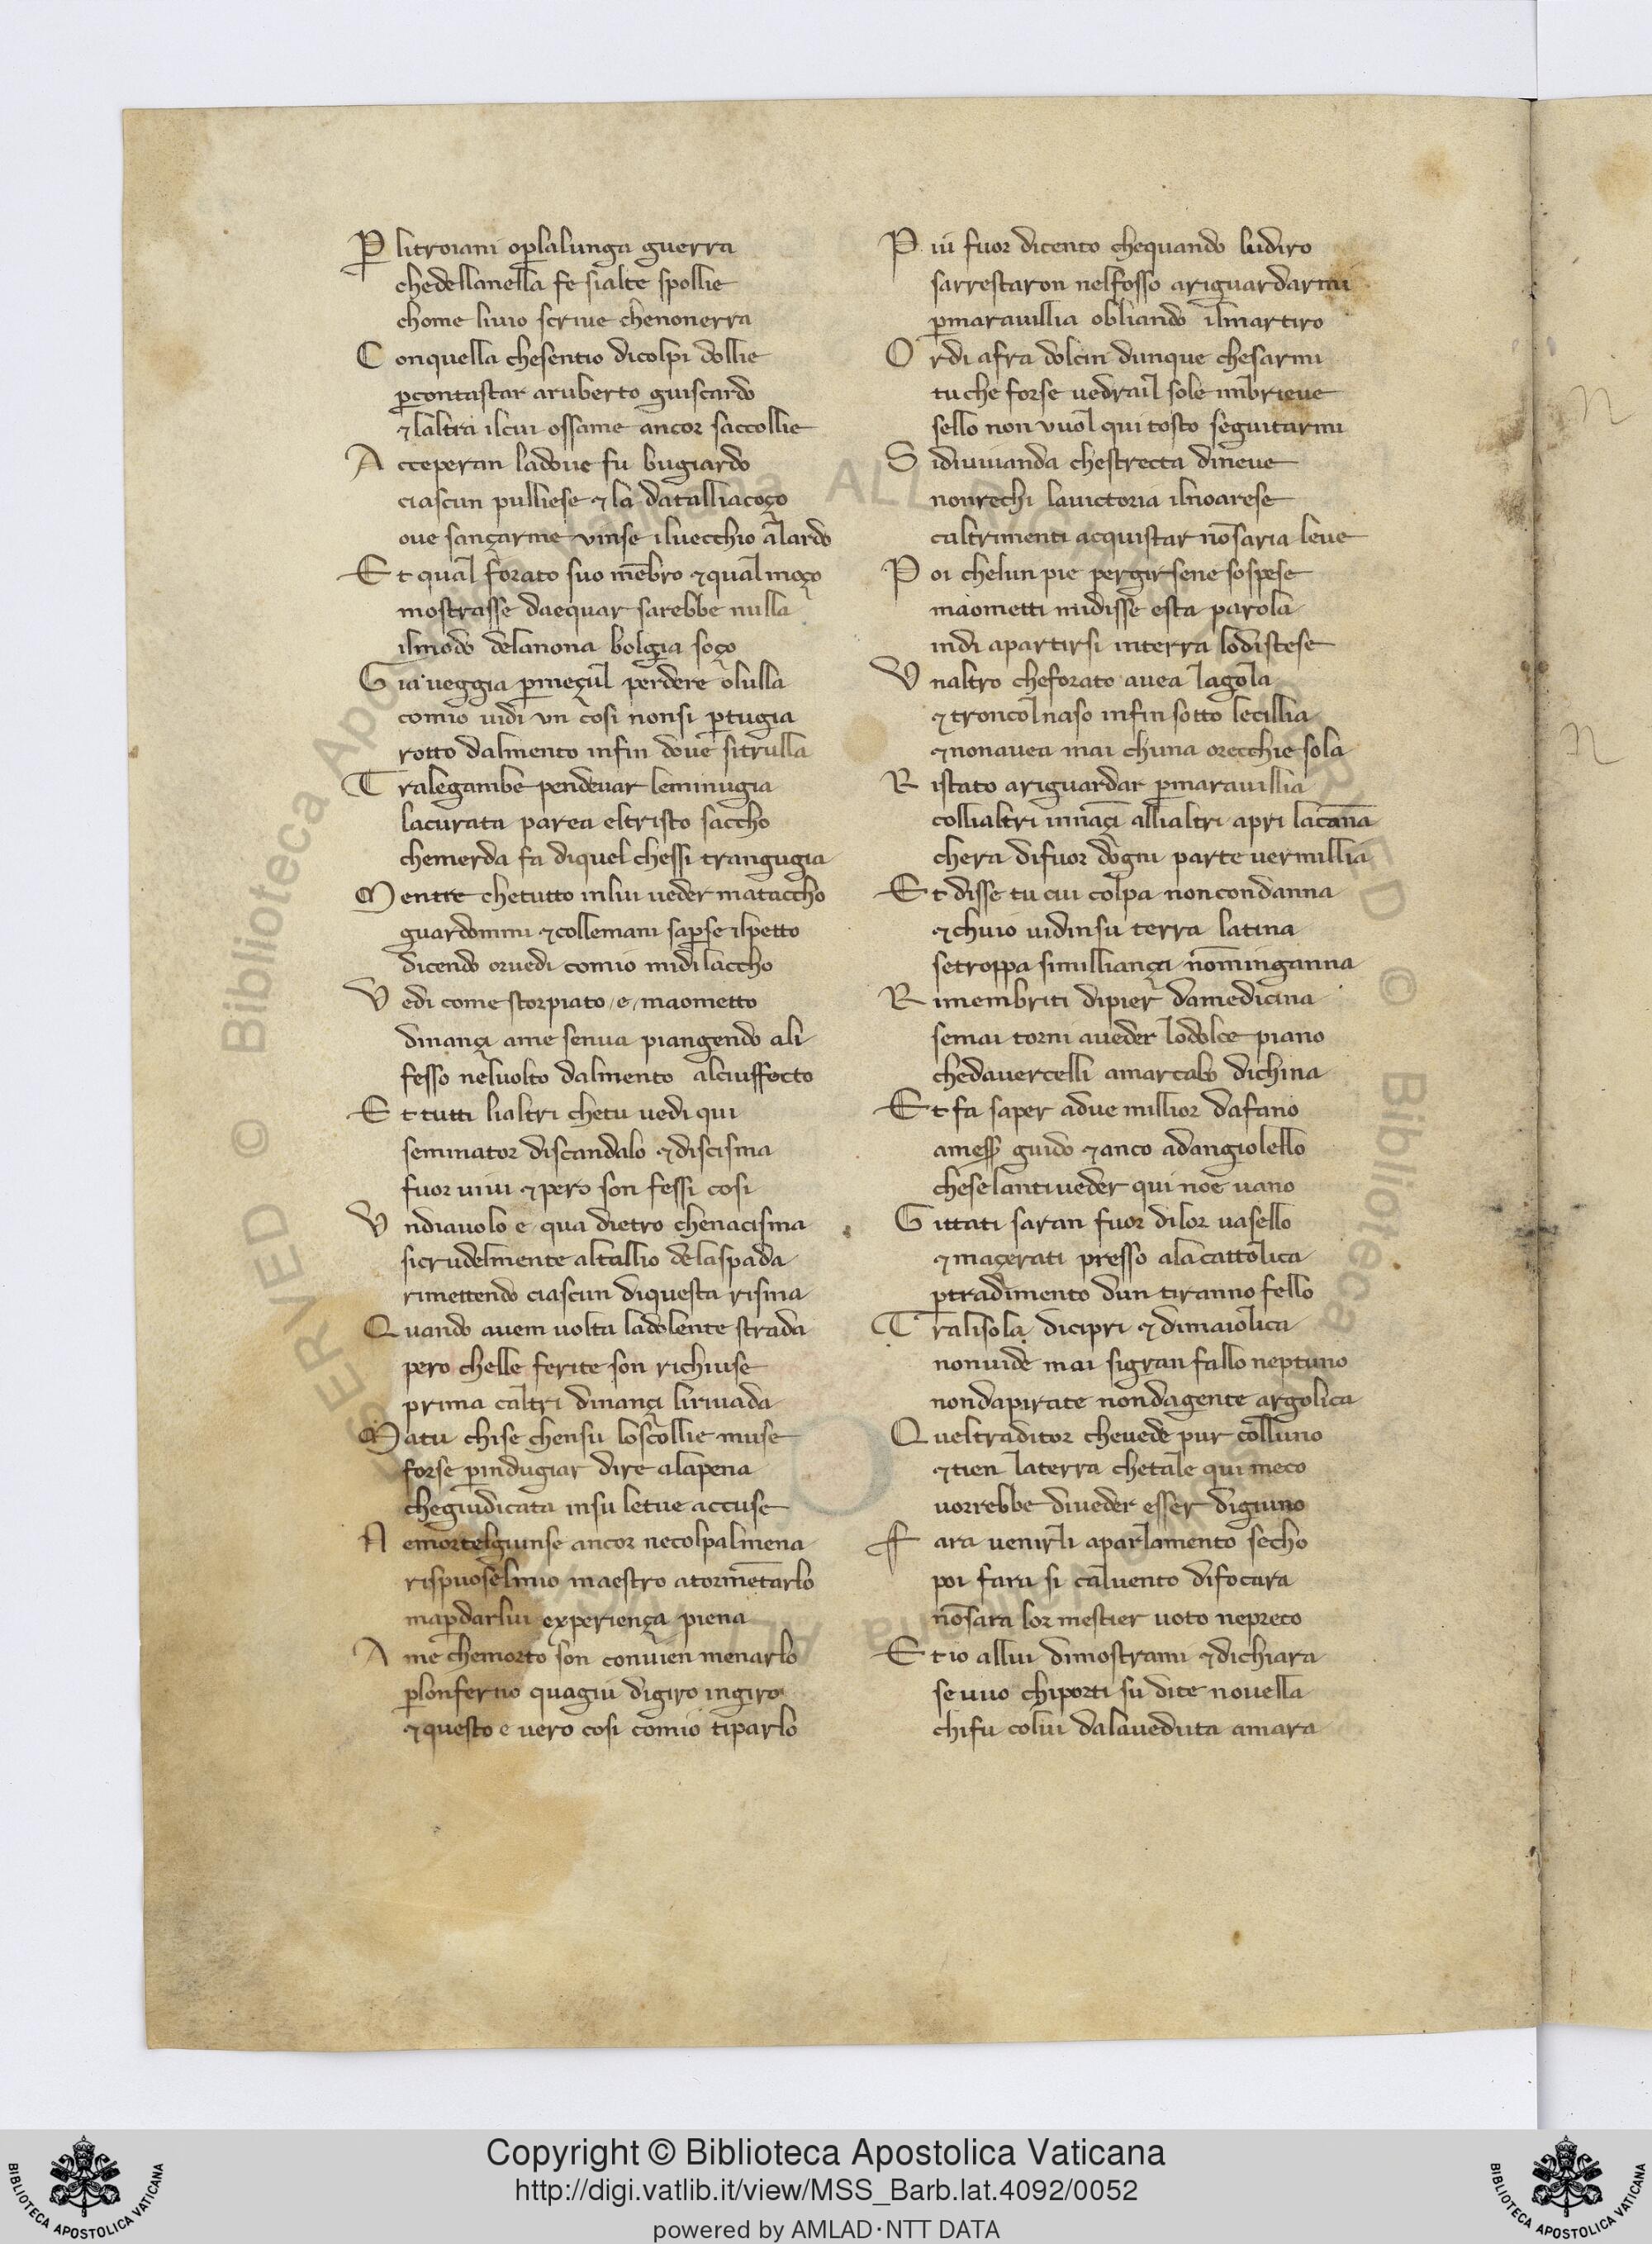 P litroiani oplalunga guerra
chedellanella fe sialte spollie
chome liuio scriue chenonerra
C onquella chesentio dicolpi dollie
pcontastar aruberto guiscardo
⁊ laltra ilcui ossame ancor saccollie
A cceperan ladoue fu bugiardo
ciascun pulliese ⁊ la datalliacoço
oue sançarme uinse iluecchio alardo
E t qual forato suo mēbro ⁊ qual moço
mostrasse daequar sarebbe nulla
ilmodo delanona bolgia soço
G ia ueggia pmeçul perdere olulla
comio uidi vn cosi nonsi ptugia
rotto dalmento infin doue sitrulla
T ralegambe pendeuar leminugia
lacurata parea eltristo saccho
chemerda fa diquel chessi trangugia
M entre chetutto inlui ueder mataccho
guardommi ⁊ collemani sapse ilpetto
dicendo oruedi comio midilaccho
V edi come storpiato e maometto
dinançi ame senua piangendo ali
fesso neluolto dalmento alciuffecto
E t tutti lialtri chetu uedi qui
seminator discandalo ⁊ discisma
fuor uiui ⁊ pero son fessi cosi
V ndiauolo e qua dietro chenacisma
sicrudelmente altallio delaspada
rimettendo ciascun diquesta risma
Q uando auem uolta ladolente strada
pero chelle ferite son richiuse
prima caltri dinançi liriuada
M atu chise chensu loscollie muse
forse pindugiar dire alapena
chegiudicata insu letue accuse
N emortelgiunse ancor necolpalmena
rispuoselmio maestro atormētarlo
mapdarlui experiença piena
A me chemorto son conuien menarlo
plonferno quagiu digiro ingiro
⁊ questo e uero cosi comio tiparlo
P iu fuor dicento chequando ludiro
sarrestaron nelfosso ariguardarmi
pmarauillia obliando ilmartiro
O rdi afra dolcin dunque chesarmi
tu che forse uedrail sole inbrieue
sello non vuol qui tosto seguitarmi
S idiuiuanda chestrecta dineue
nonrechi lauictoria ilnoarese
caltrimenti acquistar nōsaria leue
P oi chelun pie pergirsene sospese
maometti midisse esta parola
indi apartirsi interra lodistese
V naltro cheforato auea lagola
⁊ troncolnaso infin sotto lecillia
⁊ nonauea mai chuna orecchie sola
R istato ariguardar pmarauillia
collialtri innāçi allialtri apri lacāna
chera difuor dogni parte uermillia
E t disse tu cui colpa noncondanna
⁊ chuio uidinsu terra latina
setroppa similliança nōminganna
R imembriti dipier damedicina
semai torni aueder lodolce piano
chedauercelli amarcabo dichina
E t fa saper adue millior dafano
amess guido ⁊ anco adangiolello
cheselantiueder qui noē uano
G ittati saran fuor dilor uasello
⁊ maçerati presso alacattolica
ptradimento dun tiranno fello
T ralisola dicipri ⁊ dimaiolica
nonuide mai sigran fallo neptuno
nondapirate nondagente argolica
Q ueltraditor cheuede pur colluno
⁊ tien laterra chetale qui meco
uorrebbe diueder esser digiuno
F ara uenirli aparlamento secho
poi fara si caluento difocara
nōsara lor mestier uoto nepreco
E t io allui dimostrami ⁊ dichiara
seuuo chiporti su dite nouella
chifu colui dalaueduta amara
Copyright © Biblioteca Apostolica Vaticana
http://digi.vatlib.it/view/MSS_Barb.lat.4092/0052
powered by AMLAD·NTT DATA
BIBLIOTECA APOSTOLICA VATICANA
BIBLIOTECA APOSTOLICA VATICANA